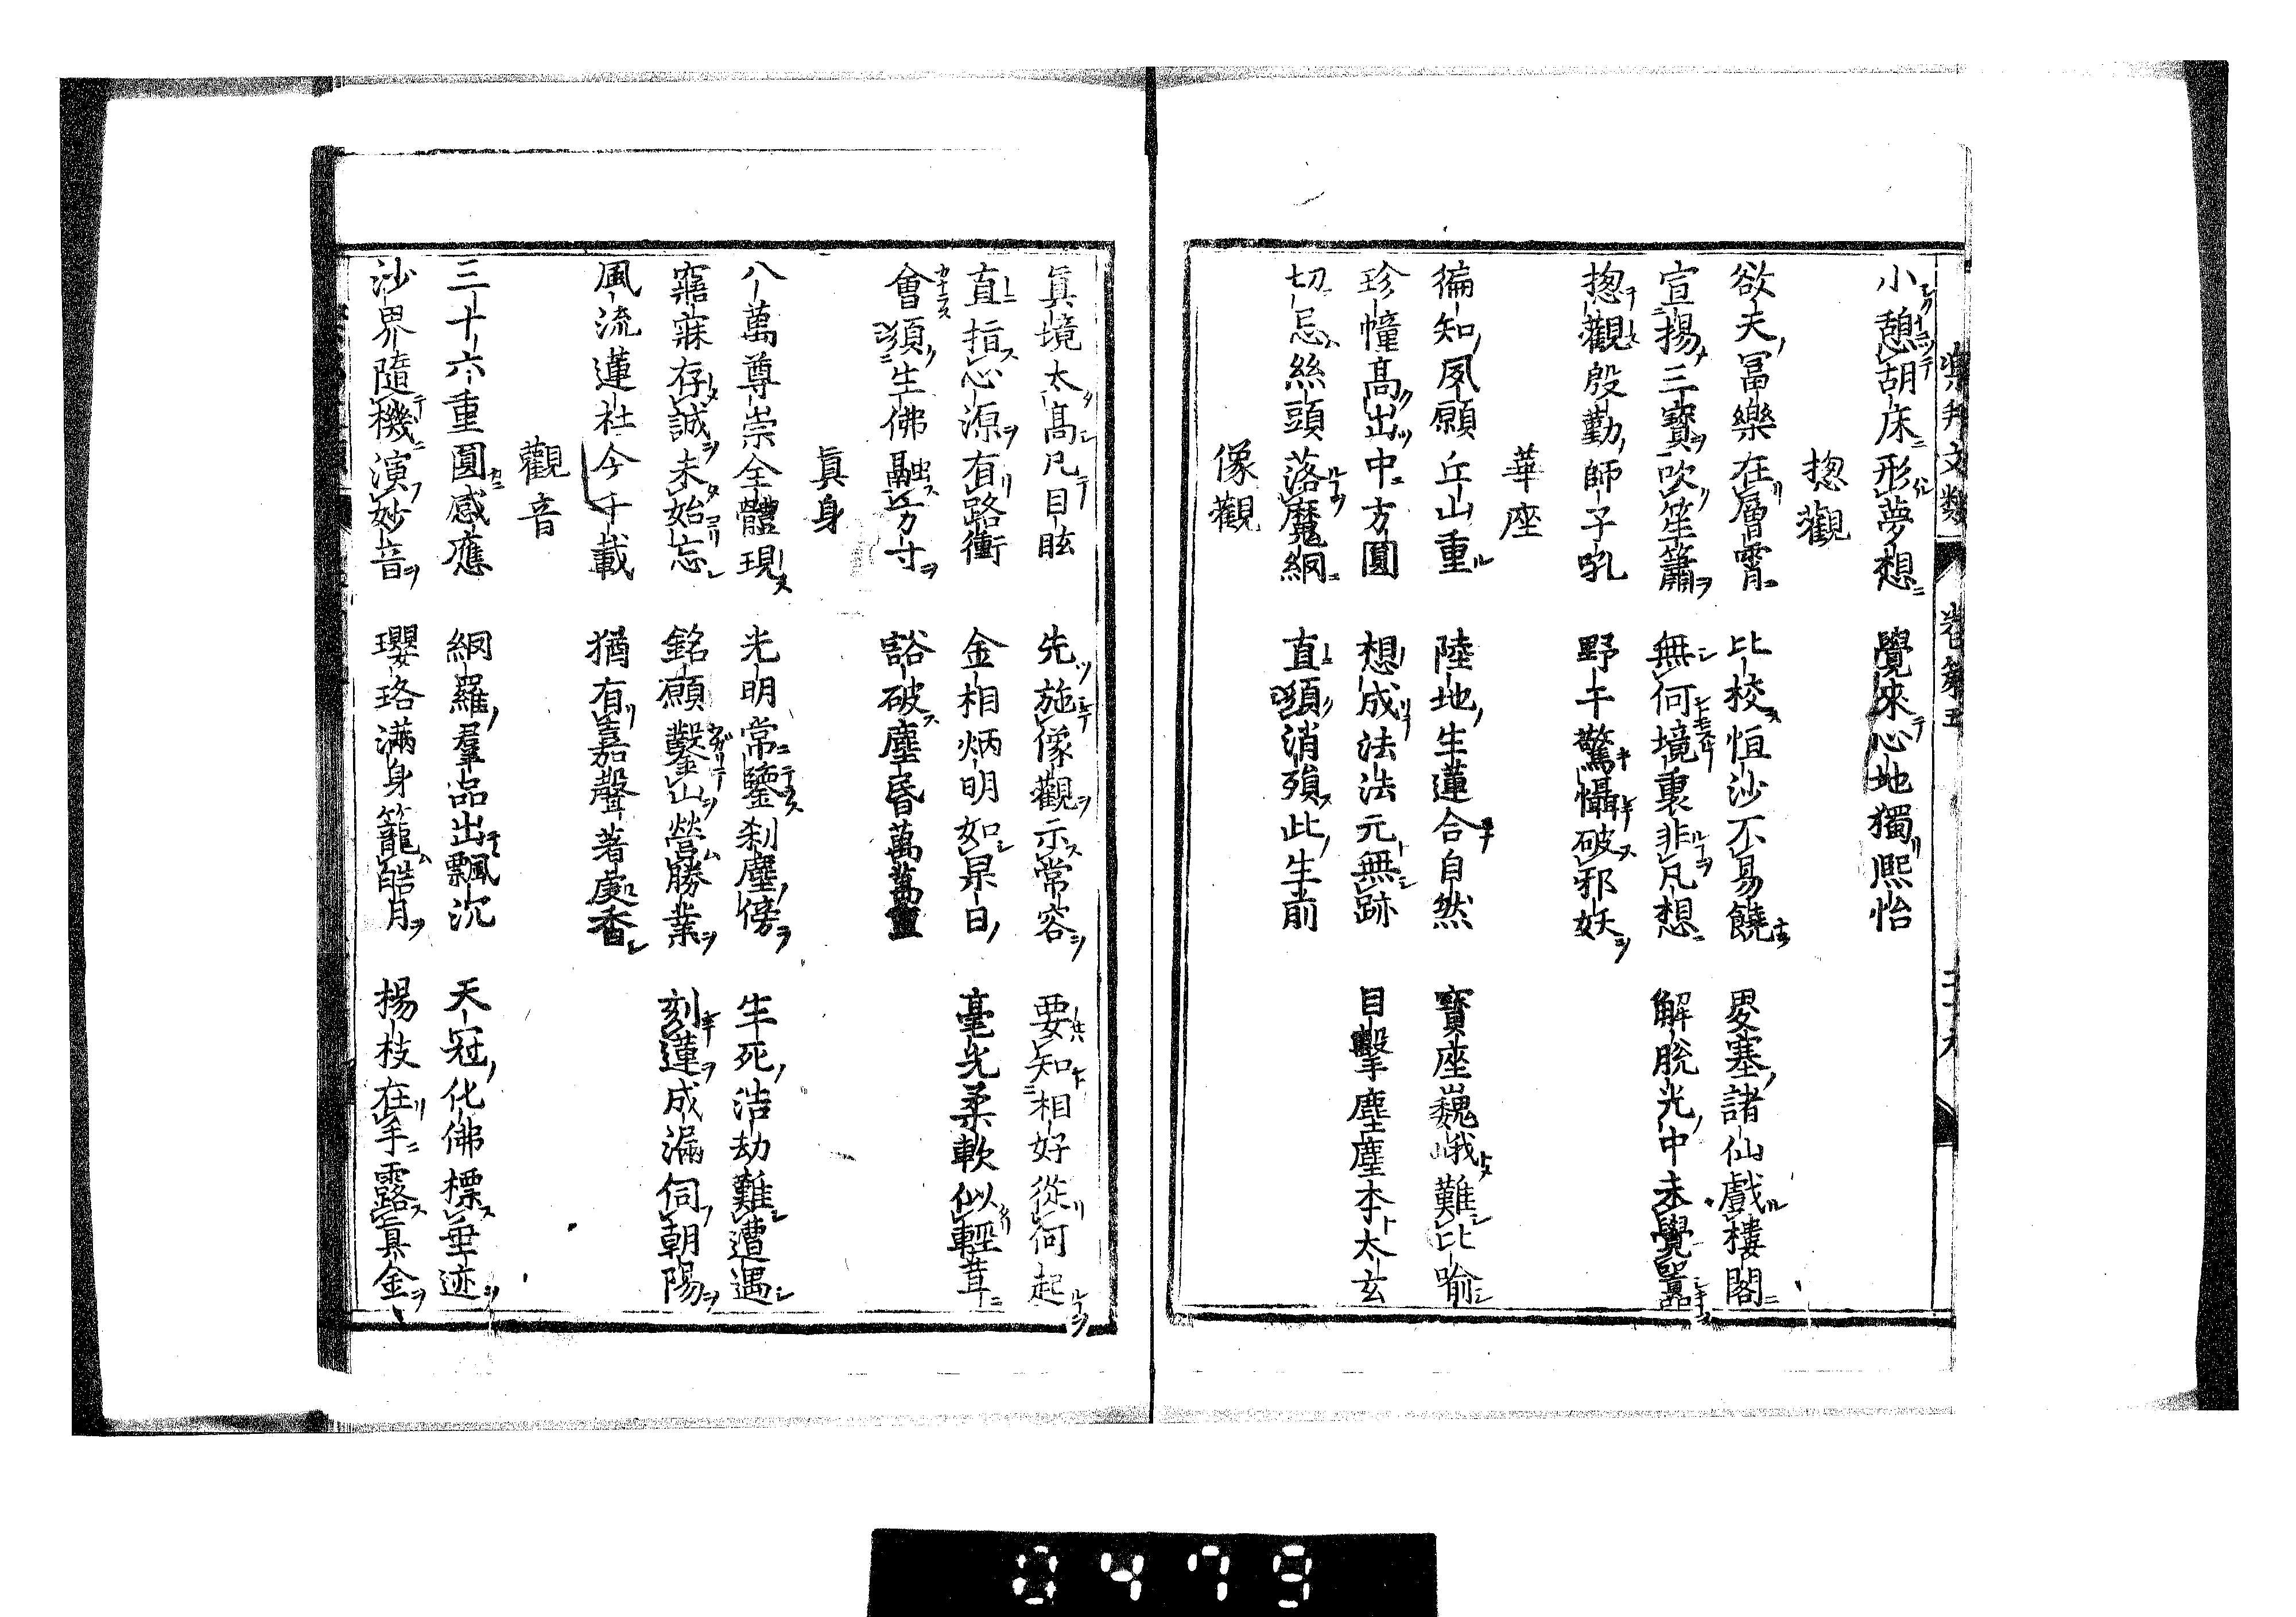 小憩胡床形夢想　覺來心地獨熙怡
揔觀
欲天冨樂在層霄　比校恒沙不易饒　㚆塞諸仙戲樓閣
宣揚三寳吹笙簫　無何境裏非凡想　解脫光中未覺囂
揔觀殷勤師子吼　野干驚懾破邪妖
華座
徧知夙願丘山重　陸地生蓮合自然　寳座巍峨難比喻
珍幢髙出中方圓　想成法法元無跡　目擊塵塵本太玄
切忌絲頭落魔網　直須消殞此生前
像觀
眞境太髙凡目眩　先施像觀示常容　要知相好從何起
直指心源有路衝　金相炳明如杲日　毫光柔軟似輕茸
會須生佛融方寸　豁破塵昏萬萬重
眞身
八萬尊崇全體現　光明常鑒剎塵傍　生死浩劫難遭遇
寤寐存誠未始忘　銘願鑿山營勝業　刻蓮成漏伺朝陽
風流蓮社今千載　猶有嘉聲著處香
觀音
三十六重圓感應　網羅羣品出飄沉　天冠化佛標垂迹
沙界隨機演妙音　瓔珞滿身籠皓月　楊枝在手露真金
文類　卷第五
0479